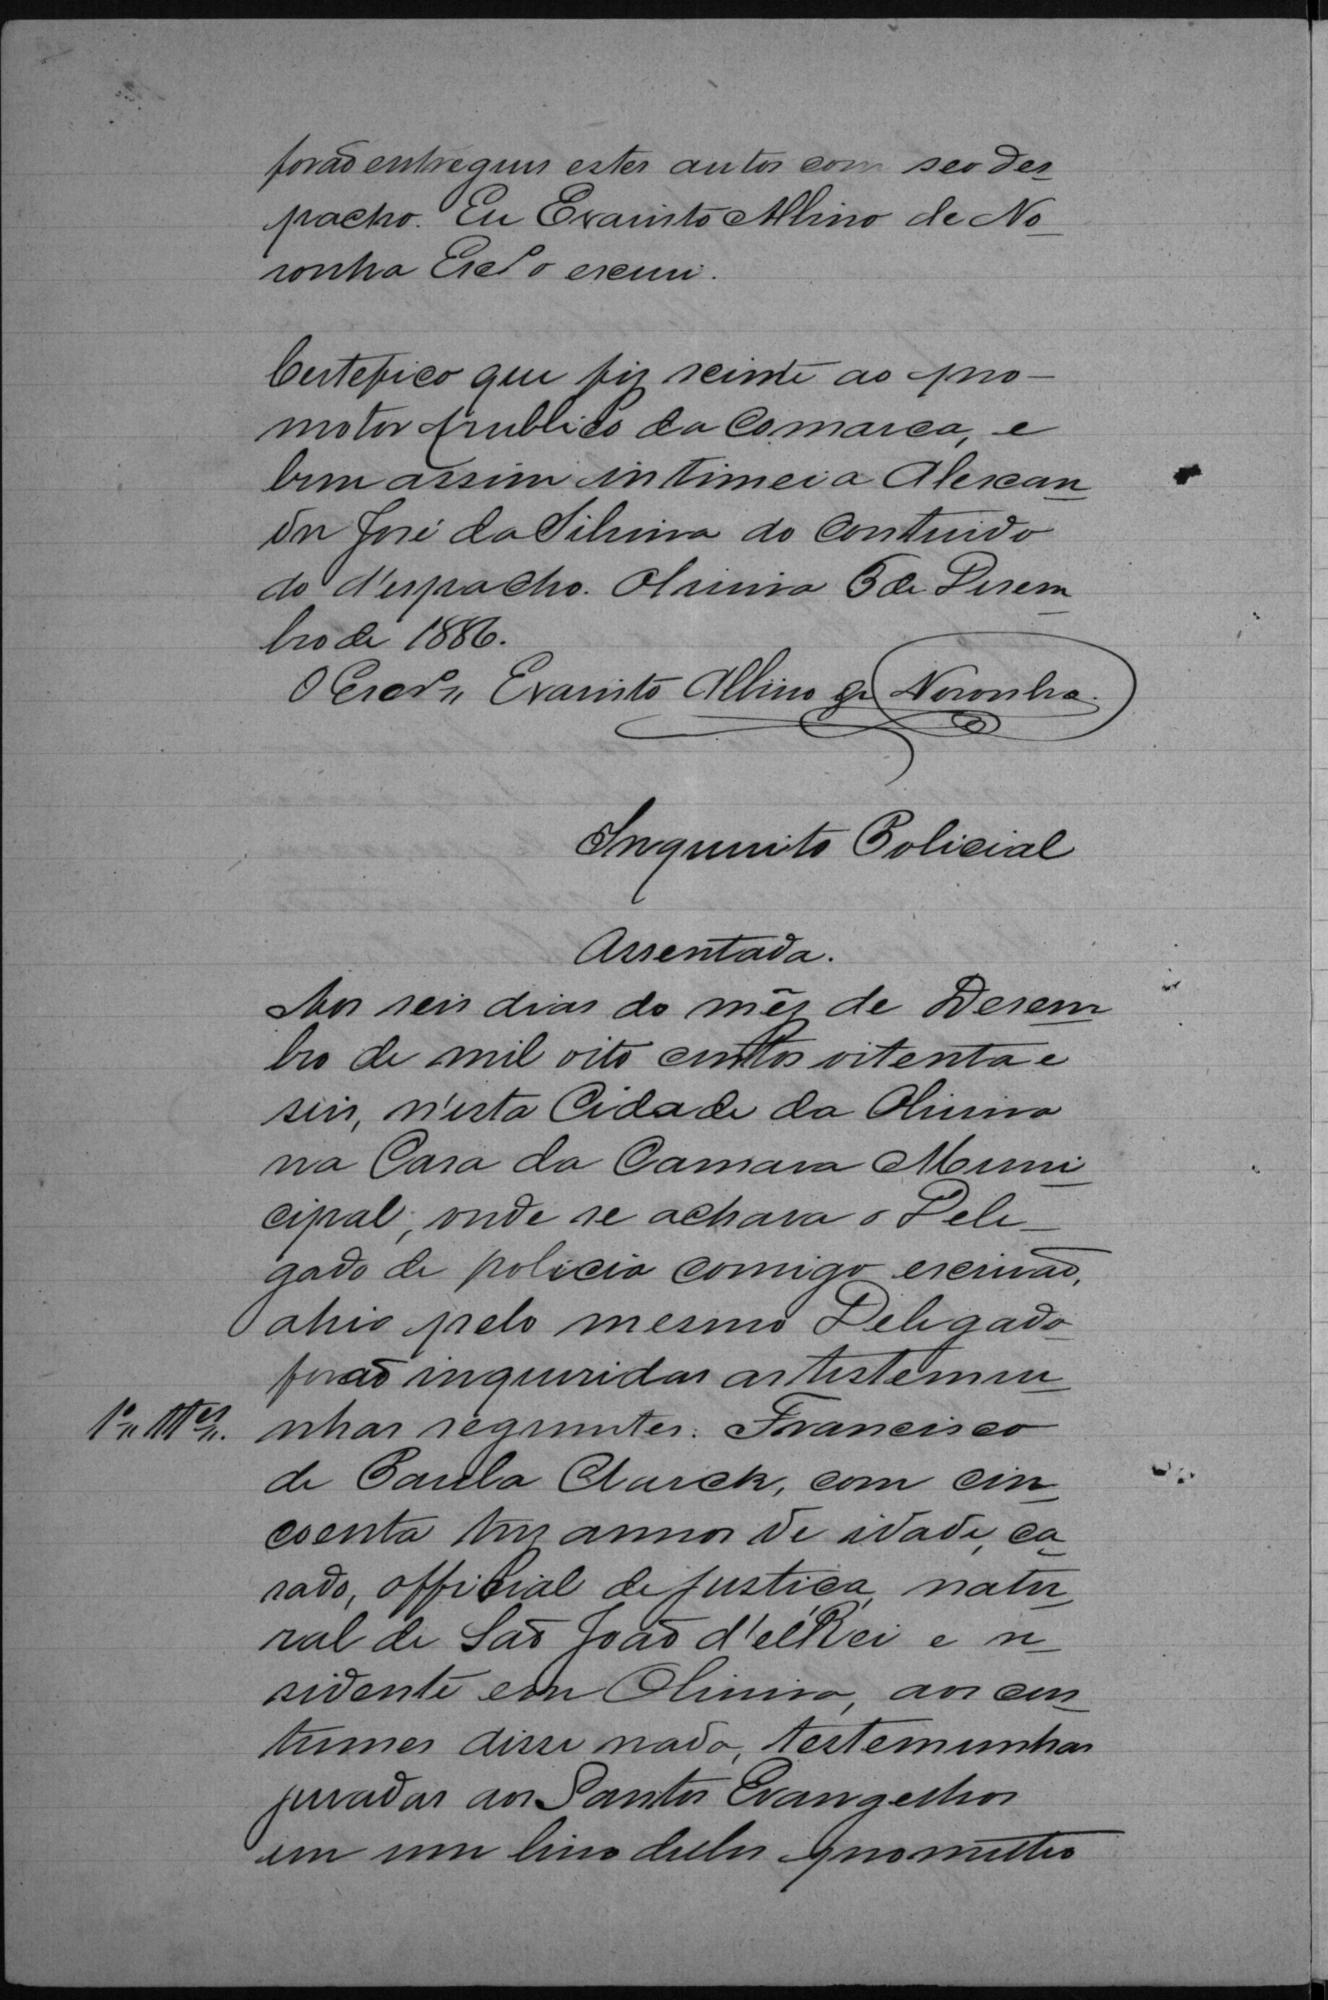 forão entregues estes autos com seo des
pacho. Eu Evaristo Albino de No
ronha Escr.o escrevi.
Certefico que fiz sciente ao pro-
motor publico da Comarca, e
bem assim intimei a Alexan
dre José da Silveira do contheudo
do d'espacho. Oliveira 5 de Desem
bro de 1886.
O Escr.m Evaristo Albino de Noronha.
Inquerito Policial
Assentada.
Aos seis dias do mês de Desem
bro de mil oito centos oitenta e
seis, n'esta Cidade da Oliveira
na Casa da Camara Muni
cipal, onde se achava o Dele
gado de policia comigo escrivão,
ahi pelo mesmo Delegado
forão inqueridas as testemu
1.a Tes.
nhas seguintes: Francisco
de Paula Clarck, com cin
coenta tres annos de idade, ca
sado, official de justiça, natu
ral de São João d'el Rei e re
sidente em Oliveira, aos cus
tumes disse nada, testemunhas
juradas aos Santos Evangelhos
em um livro delles prometteo